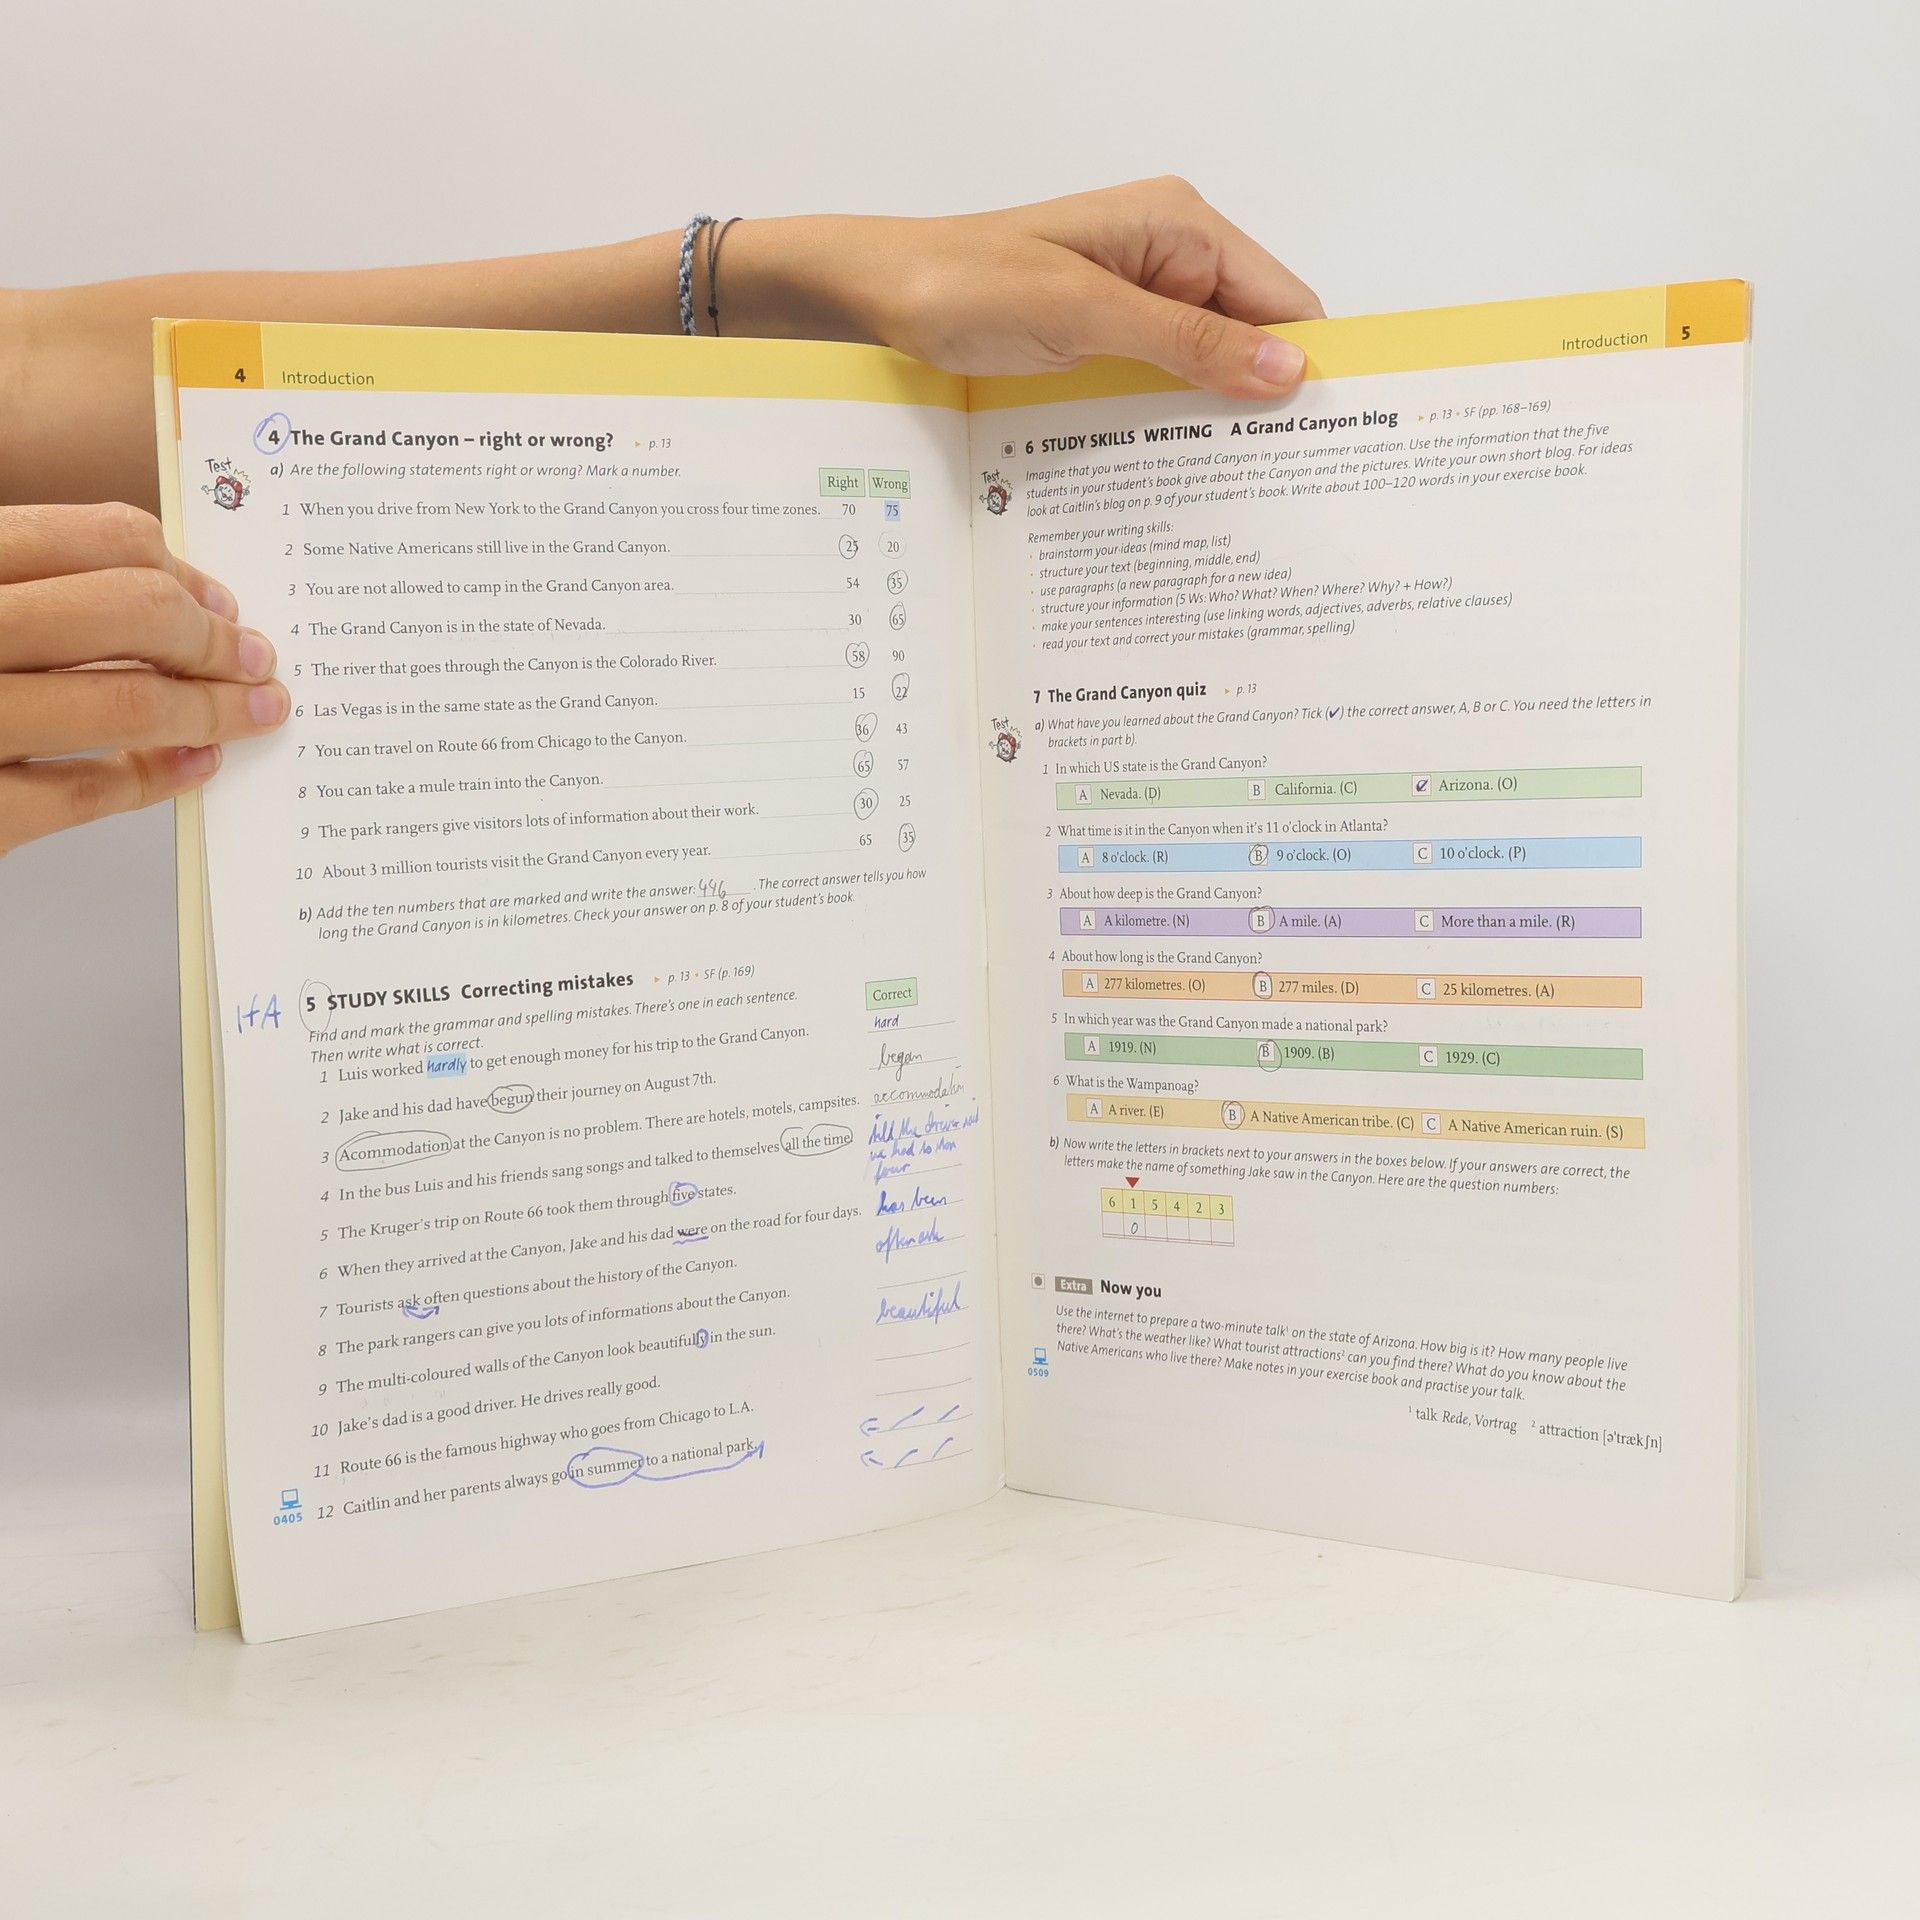 4 Introduction
4 The Grand Canyon – right or wrong? ▸ p. 13
Test
a) Are the following statements right or wrong? Mark a number.
Right Wrong
1 When you drive from New York to the Grand Canyon you cross four time zones. 70 75
2 Some Native Americans still live in the Grand Canyon. 25 20
3 You are not allowed to camp in the Grand Canyon area. 54 35
4 The Grand Canyon is in the state of Nevada. 30 65
5 The river that goes through the Canyon is the Colorado River. 58 90
6 Las Vegas is in the same state as the Grand Canyon. 15 22
7 You can travel on Route 66 from Chicago to the Canyon. 36 43
8 You can take a mule train into the Canyon. 65 57
9 The park rangers give visitors lots of information about their work. 30 25
10 About 3 million tourists visit the Grand Canyon every year. 65 35
b) Add the ten numbers that are marked and write the answer: 446 . The correct answer tells you how
long the Grand Canyon is in kilometres. Check your answer on p. 8 of your student's book.
HA
5 STUDY SKILLS Correcting mistakes ▸ p. 13 • SF (p. 169)
Find and mark the grammar and spelling mistakes. There's one in each sentence.
Then write what is correct.
Correct
1 Luis worked hardly to get enough money for his trip to the Grand Canyon. hard
2 Jake and his dad have begun their journey on August 7th. began
3 Acommodation at the Canyon is no problem. There are hotels, motels, campsites. accommodation
4 In the bus Luis and his friends sang songs and talked to themselves all the time
5 The Kruger's trip on Route 66 took them through five states. four
6 When they arrived at the Canyon, Jake and his dad were on the road for four days. has been
7 Tourists ask often questions about the history of the Canyon. often ask
8 The park rangers can give you lots of informations about the Canyon.
9 The multi-coloured walls of the Canyon look beautifully in the sun. beautiful
10 Jake's dad is a good driver. He drives really good.
11 Route 66 is the famous highway who goes from Chicago to L.A.
12 Caitlin and her parents always go in summer to a national park.
0405
Introduction 5
6 STUDY SKILLS WRITING A Grand Canyon blog ▸ p. 13 • SF (pp. 168–169)
Test
Imagine that you went to the Grand Canyon in your summer vacation. Use the information that the five
students in your student's book give about the Canyon and the pictures. Write your own short blog. For ideas
look at Caitlin's blog on p. 9 of your student's book. Write about 100–120 words in your exercise book.
Remember your writing skills:
• brainstorm your ideas (mind map, list)
• structure your text (beginning, middle, end)
• use paragraphs (a new paragraph for a new idea)
• structure your information (5 Ws: Who? What? When? Where? Why? + How?)
• make your sentences interesting (use linking words, adjectives, adverbs, relative clauses)
• read your text and correct your mistakes (grammar, spelling)
7 The Grand Canyon quiz ▸ p. 13
Test
a) What have you learned about the Grand Canyon? Tick (✔) the correct answer, A, B or C. You need the letters in
brackets in part b).
1 In which US state is the Grand Canyon?
A Nevada. (D) B California. (C) C Arizona. (O)
2 What time is it in the Canyon when it's 11 o'clock in Atlanta?
A 8 o'clock. (R) B 9 o'clock. (O) C 10 o'clock. (P)
3 About how deep is the Grand Canyon?
A A kilometre. (N) B A mile. (A) C More than a mile. (R)
4 About how long is the Grand Canyon?
A 277 kilometres. (O) B 277 miles. (D) C 25 kilometres. (A)
5 In which year was the Grand Canyon made a national park?
A 1919. (N) B 1909. (B) C 1929. (C)
6 What is the Wampanoag?
A A river. (E) B A Native American tribe. (C) C A Native American ruin. (S)
b) Now write the letters in brackets next to your answers in the boxes below. If your answers are correct, the
letters make the name of something Jake saw in the Canyon. Here are the question numbers:
6 1 5 4 2 3
O
Extra Now you
Use the internet to prepare a two-minute talk¹ on the state of Arizona. How big is it? How many people live
there? What's the weather like? What tourist attractions² can you find there? What do you know about the
Native Americans who live there? Make notes in your exercise book and practise your talk.
0509
¹ talk Rede, Vortrag ² attraction [ə'trækʃn]